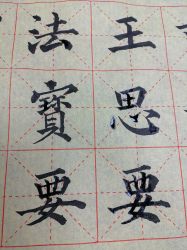 王思要
法寶要